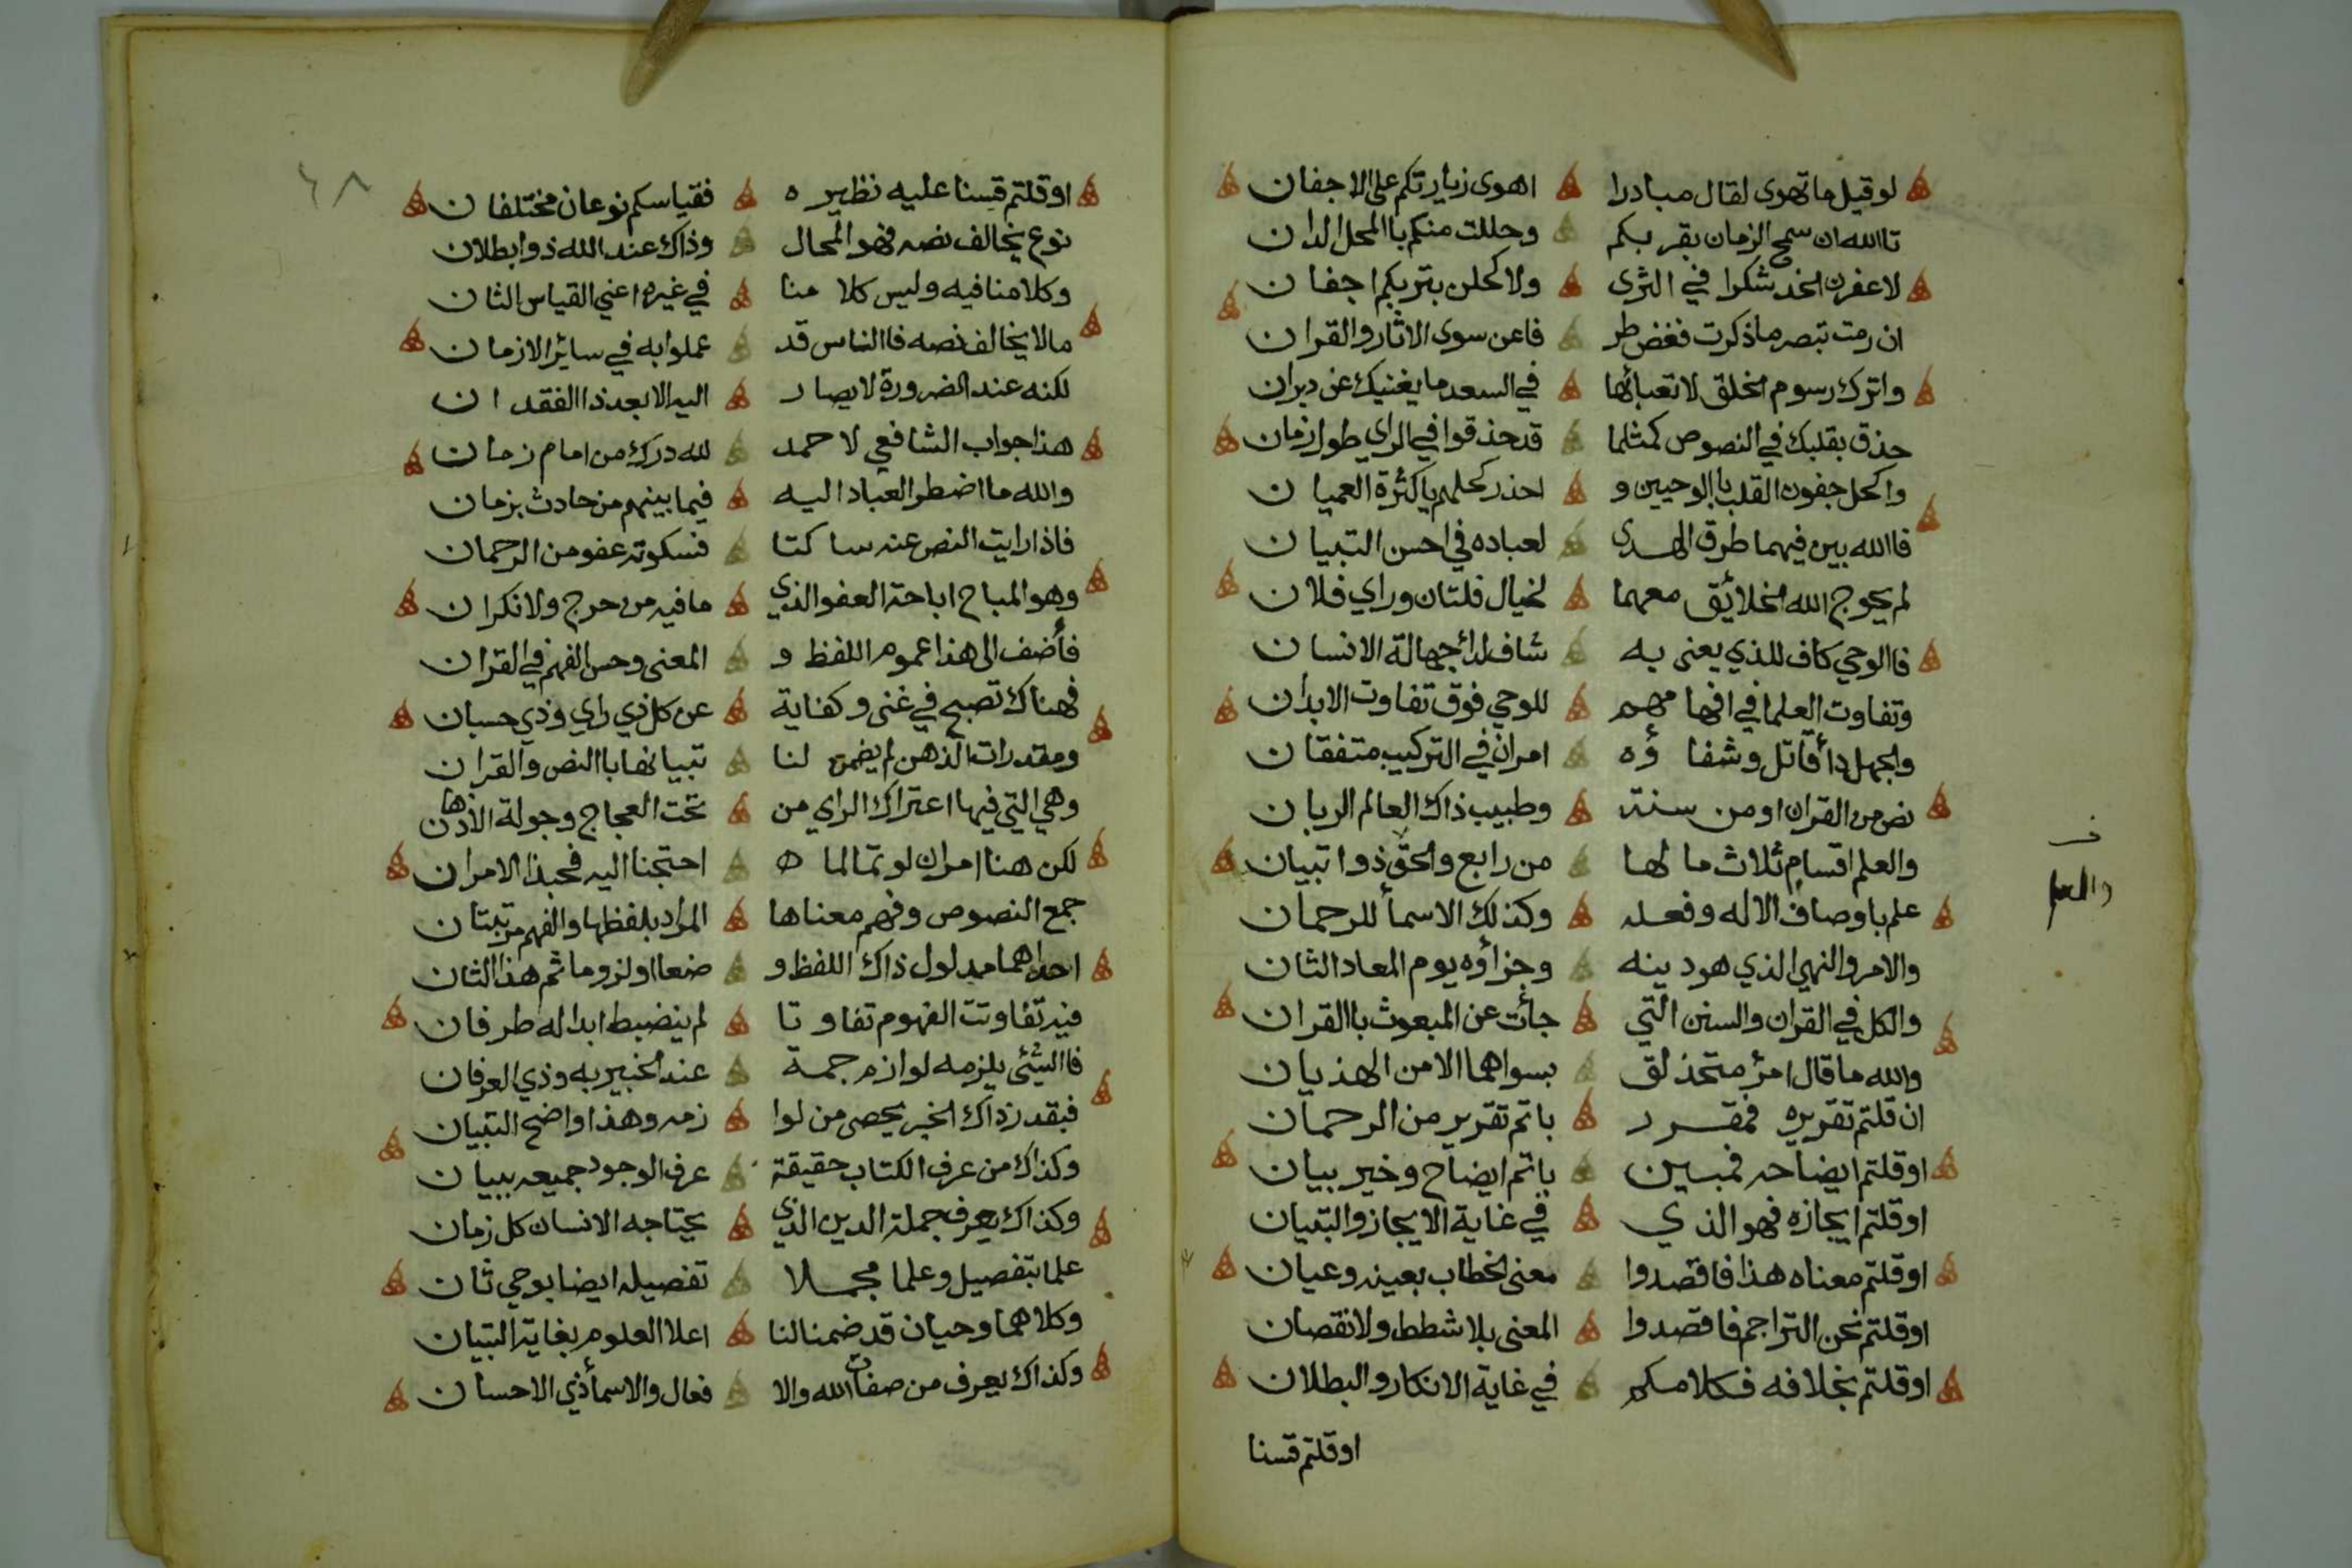 لوقيل ماتهوى لقال مبادرا اهوى زيارتكم على الاجفان
تاالله ان سمح الزمان بقربكم وحللت منكم باالمحل الدان
لاعفرن الخد شكرا في الثرى ولاكحلن بتربكم اجفان
ان رمت تبصر ماذكرت فغض طر فاعن سوى الاثار والقران
واترك رسوم الخلق لاتعبابها في السعد مايغنيك عن دبران
حذق بقلبك في النصوص كمثلما قد حذقوا في الراي طول زمان
واكحل جفون القلب باالوحيين و احذر كحلهم ياكثرة العميان
فاالله بين فيهما طرق الهدى لعباده في احسن التبيان
لم يحوج الله الخلائق معهما لخيال فلتان وراي فلان
فاالوحي كاف للذي يعنى به شاف لدأ جهالة الانسان
وتفاوت العلما في افهامهم للوحي فوق تفاوت الابدان
والجهل دأ قاتل وشفاؤه امران في التركيب متفقان
نص من القران اومن سنة وطبيب ذاك العالم الربان
والعلم اقسام ثلاث مالها من رابع والحق ذوا تبيان
والعلم
علم باوصاف الاله وفعله وكذلك الاسمأ للرحمان
والامر والنهي الذي هو دينه وجزاؤه يوم المعاد الثان
والكل في القران والسنن التي جأت عن المبعوث باالقران
والله ماقال امرؤ متحذلق بسواهما الامن الهذيان
ان قلتم تقريره فمقرر باتم تقرير من الرحمان
اوقلتم ايضاحه فمبين باتم ايضاح وخير بيان
اوقلتم ايجازه فهو الذي في غاية الايجاز والتبيان
اوقلتم معناه هذا فاقصدوا معنى الخطاب بعينه وعيان
اوقلتم نحن التراجم فاقصدوا المعنى بلا شطط ولانقصان
اوقلتم بخلافه فكلامكم في غاية الانكار والبطلان
اوقلتم قسنا
٦٨
اوقلتم قسنا عليه نظيره فقياسكم نوعان مختلفان
نوع يخالف نصه فهو المحال وذاك عند الله ذوابطلان
وكلامنا فيه وليس كلامنا في غيره اعني القياس الثان
مالايخالف نصه فاالناس قد عملوابه في سائر الازمان
لكنه عند الضرورة لايصار اليه الابعد ذاالفقدان
هذا جواب الشافعي لاحمد لله درك من امام زمان
والله مااضطر العباد اليه فيما بينهم من حادث بزمان
فاذا رايت النص عنه ساكتا فسكوته عفو من الرحمان
وهو المباح اباحة العفو الذي مافيه من حرج ولانكران
فأضف الى هذا عموم اللفظ و المعنى وحسن الفهم في القران
فهناك تصبح في غنى وكفاية عن كل ذي راي وذي حسبان
ومقدرات الذهن لم يضمن لنا تبيانها باالنص والقران
وهي التي فيها اعتراك الراي من تحت العجاج وجولة الاذهان
لكن هنا امران لوتمالما احتجنا اليه فحبذا الامران
جمع النصوص وفهم معناها المراد بلفظها والفهم مرتبتان
احداهما مدلول ذاك اللفظ و ضعا اولزوما ثم هذا الثان
فيه تفاوتت الفهوم تفاوتا لم ينضبط ابدا له طرفان
فاالشئ يلزمه لوازم جمة عند الخبير به وذي العرفان
فبقدر ذاك الخبر يحصى من لوا زمه وهذا واضح التبيان
وكذاك من عرف الكتاب حقيقة عرف الوجود جميعه ببيان
وكذاك يعرف جملة الدين الذي يحتاجه الانسان كل زمان
علما بتفصيل وعلما مجملا تفصيله ايضا بوحي ثان
وكلاهما وحيان قد ضمنا لنا اعلا العلوم بغاية التبيان
وكذاك يعرف من صفات الله والا فعال والاسمأ ذي الاحسان